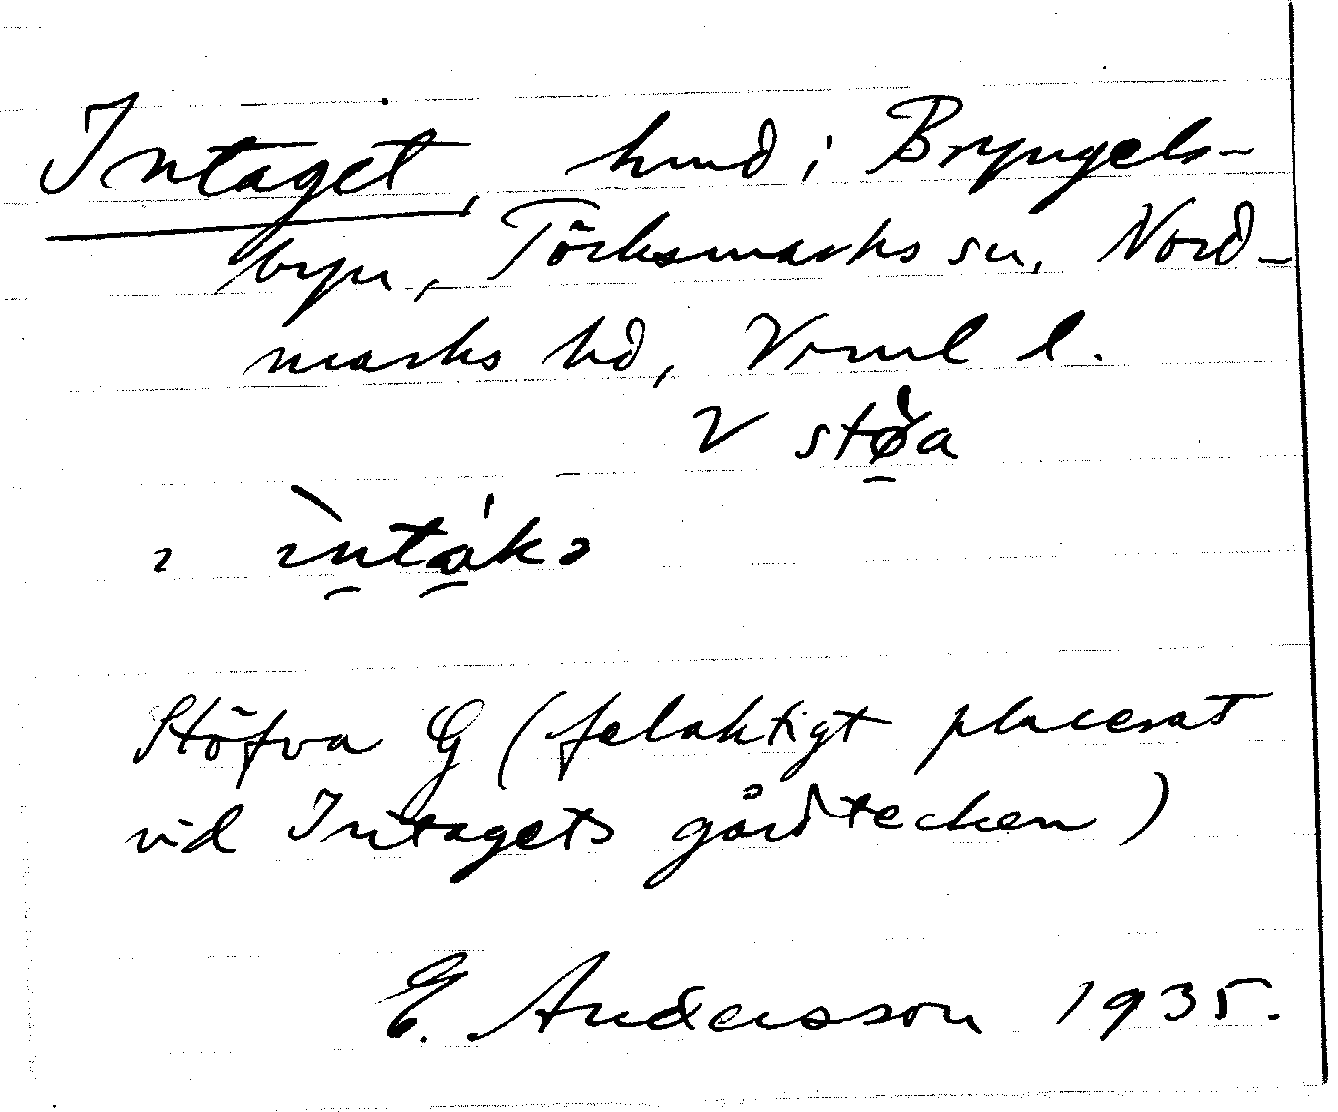 Intaget, hmd i Bryngels-
byn, Töcksmarks sn, Nord-
marks hd, Vrml l.
V stø̀a
ı ìntákə
Stöfva G (felaktigt placerat
vid Intagets gårdtecken)
E. Andersson 1935.